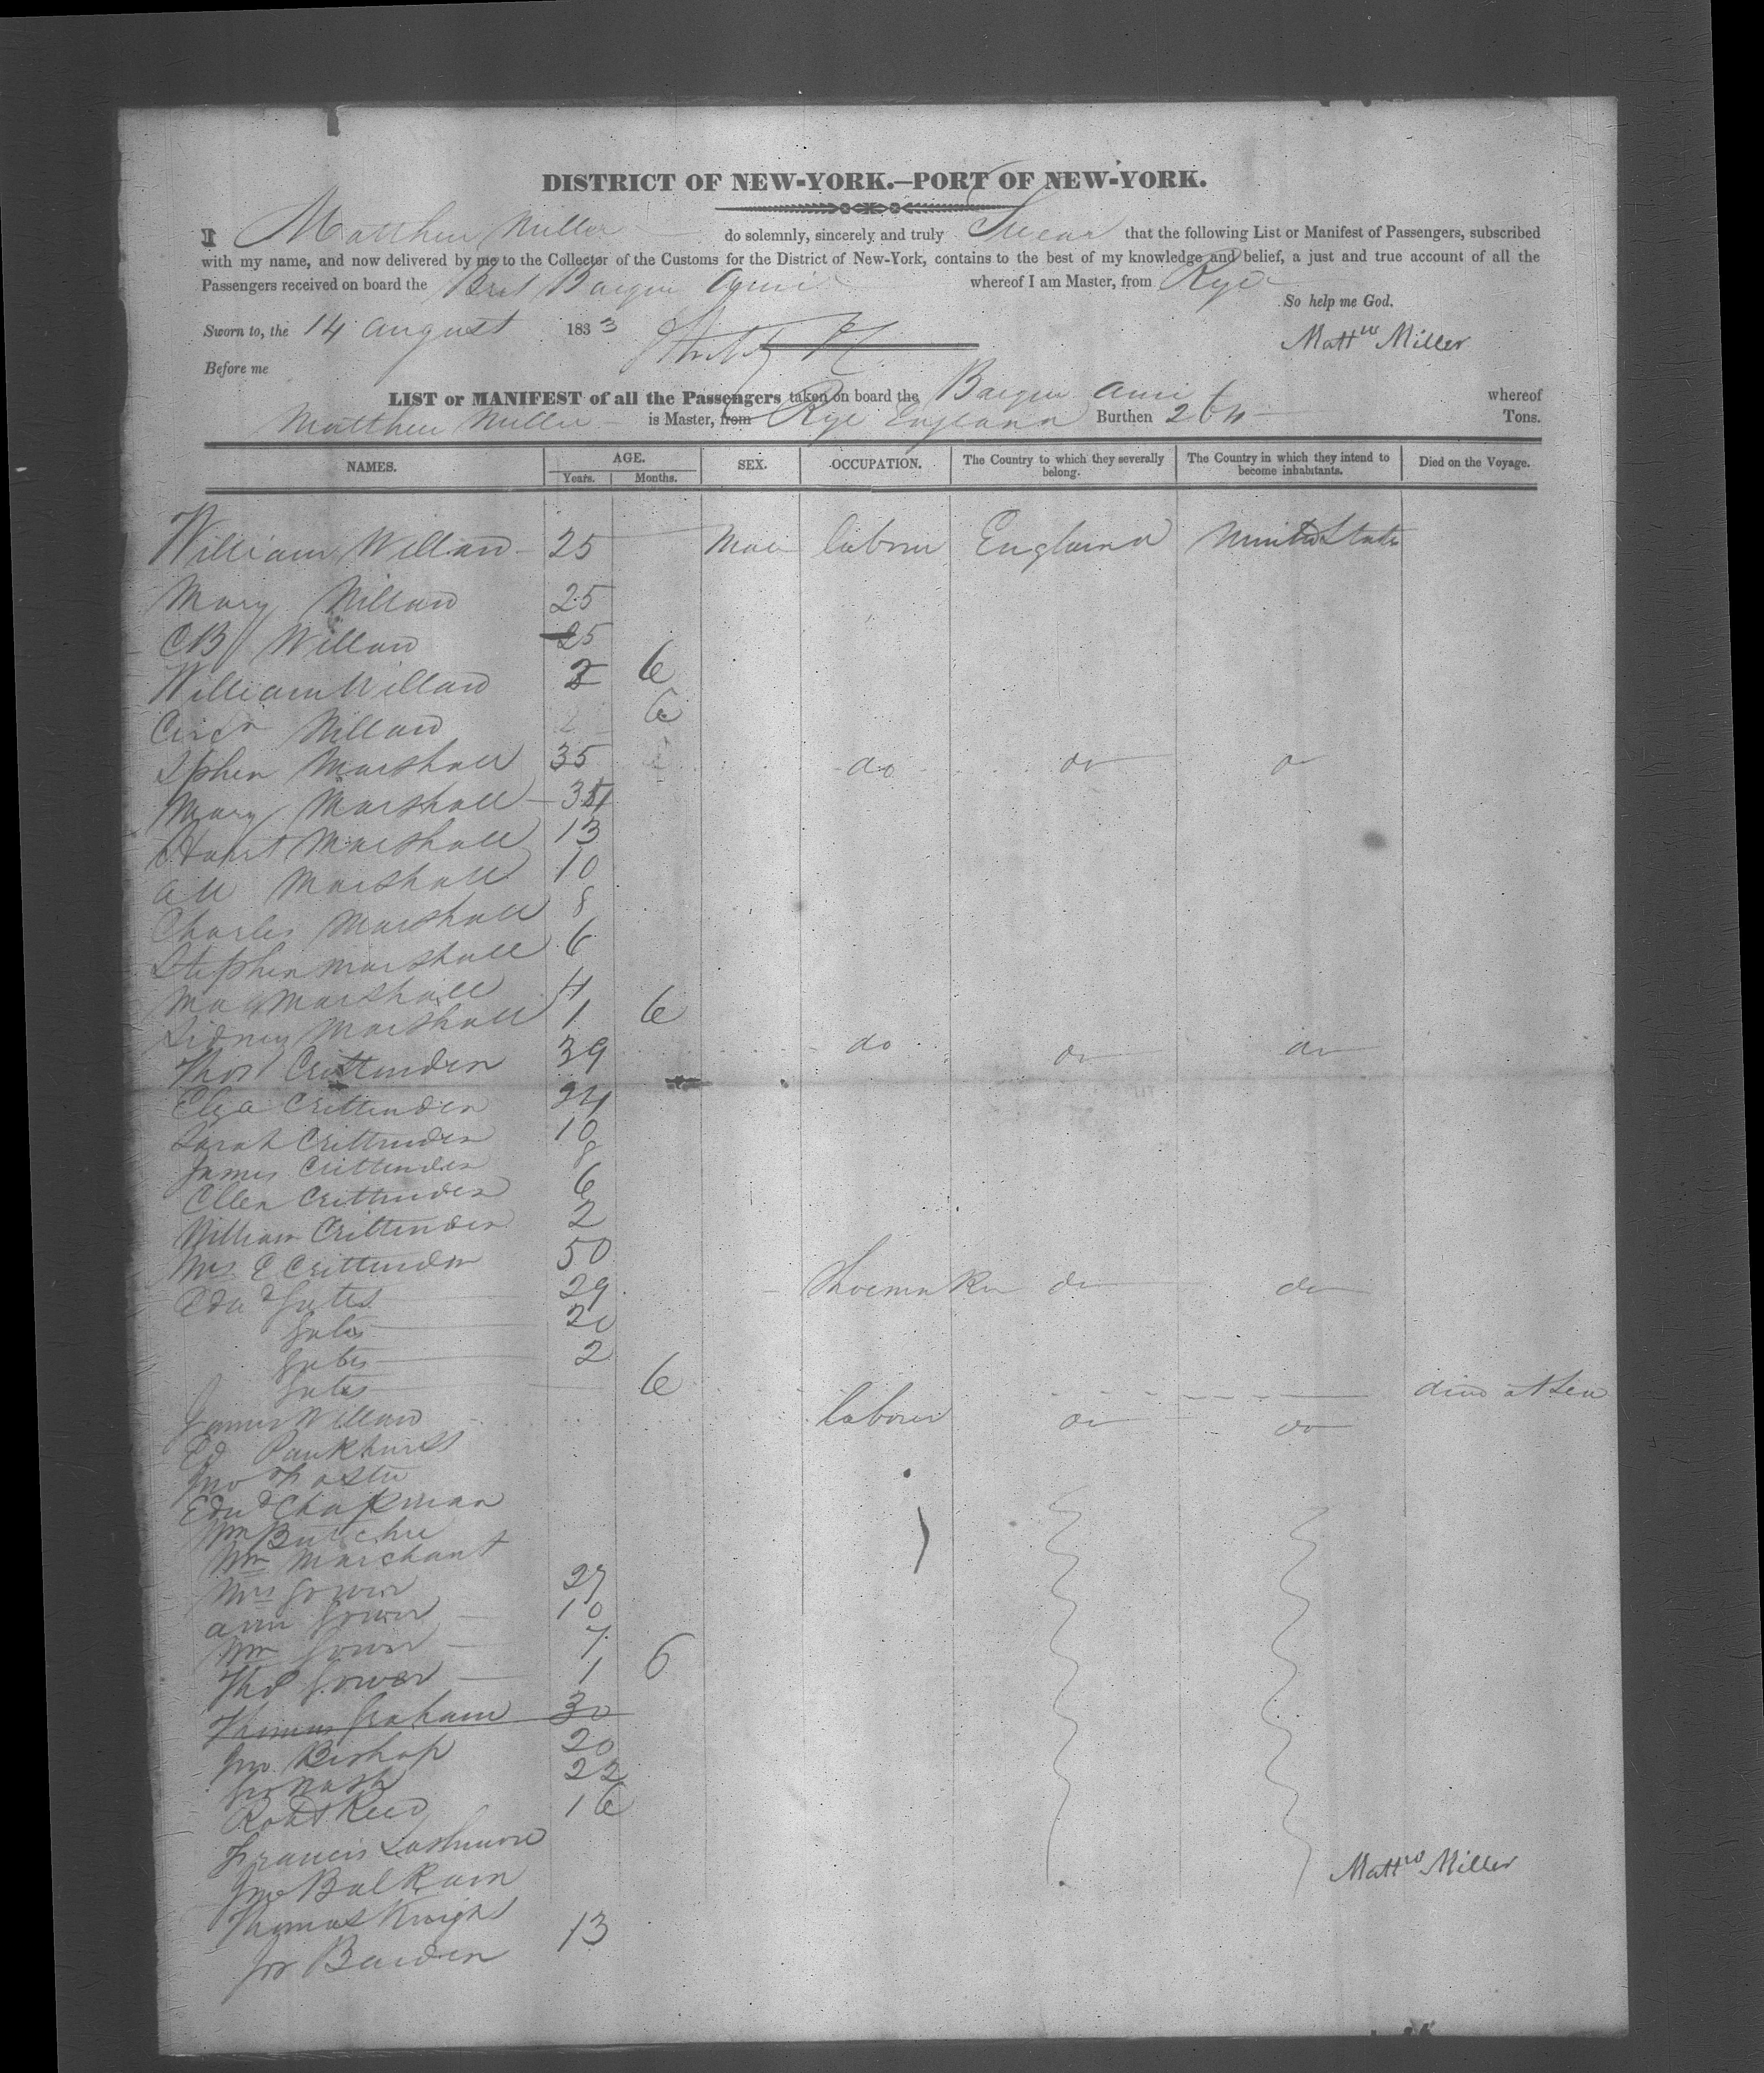 DISTRICT OF NEW-YORK.—PORT OF NEW-YORK.
I Matthew Miller do solemnly, sincerely and truly Swear that the following List or Manifest of Passengers, subscribed
with my name, and now delivered by me to the Collector of the Customs for the District of New-York, contains to the best of my knowledge and belief, a just and true account of all the
Passengers received on board the Brit Barque whereof I am Master, from Rye
So help me God.
Sworn to, the 14 August 1833
Mattw Miller
Before me
LIST or MANIFEST of all the Passengers taken on board the Barque whereof
Matthew Miller is Master, from Rye England Burthen 264 Tons.
NAMES. AGE. Years. Months. SEX. OCCUPATION. The Country to which they severally belong. The Country in which they intend to become inhabitants. Died on the Voyage.
William Willard 25 Male labour England United States
Mary Willard 25
Willard 25
William Willard 2 6
Willard 6
Marshall 35 do do do
Mary Marshall
Marshall 13
Marshall 10
Charles Marshall 8
Stephen Marshall 6
May Marshall 4
Sidney Marshall 1 6
Thos Crittenden 39 do do do
Eliza Crittenden 24
Sarah Crittenden 10
James Crittenden 8
Ellen Crittenden 6
William Crittenden 2
Mrs E Crittenden 50
Edwd Gates 29 Shoemaker do do
Gates
Gates 2
Gates 6 died at Sea
James Willard labour do do
Ed Pankhurst
Jno Foster
Edwd Chapman
Wm Butcher
Wm Marchant
Mrs Gower 27
Ann Gower 10
Wm Gower 7
Tho Gower 1 6
Thomas Graham 30
Jno Bishop 20
Jno Nash 22
Robt Reed 16
Francis Lashmore
Jno Balkam
Mattw Miller
Thomas Knight
Barden 13